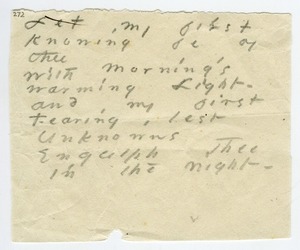 272
Let, my first
Knowing be of
thee
With morning's
warming Light -
and, my first
Fearing, lest
Unknowns
Engulph Thee
in the night -